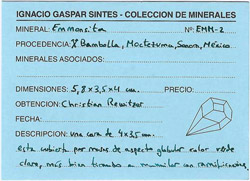 IGNACIO GASPAR SINTES - COLECCION DE MINERALES
MINERAL: Emmonsita Nº: EMM-2
PROCEDENCIA: Bambolla, Moctezuma, Sonora, México.
MINERALES ASOCIADOS:
DIMENSIONES: 5,8x3,5x4 cm. PRECIO:
OBTENCION: Christian Rewitzer
FECHA:
DESCRIPCION: una cara de 4x3,5 cm.
esta cubierta por masas de aspecto globular color verde
claro, más bien tirando a